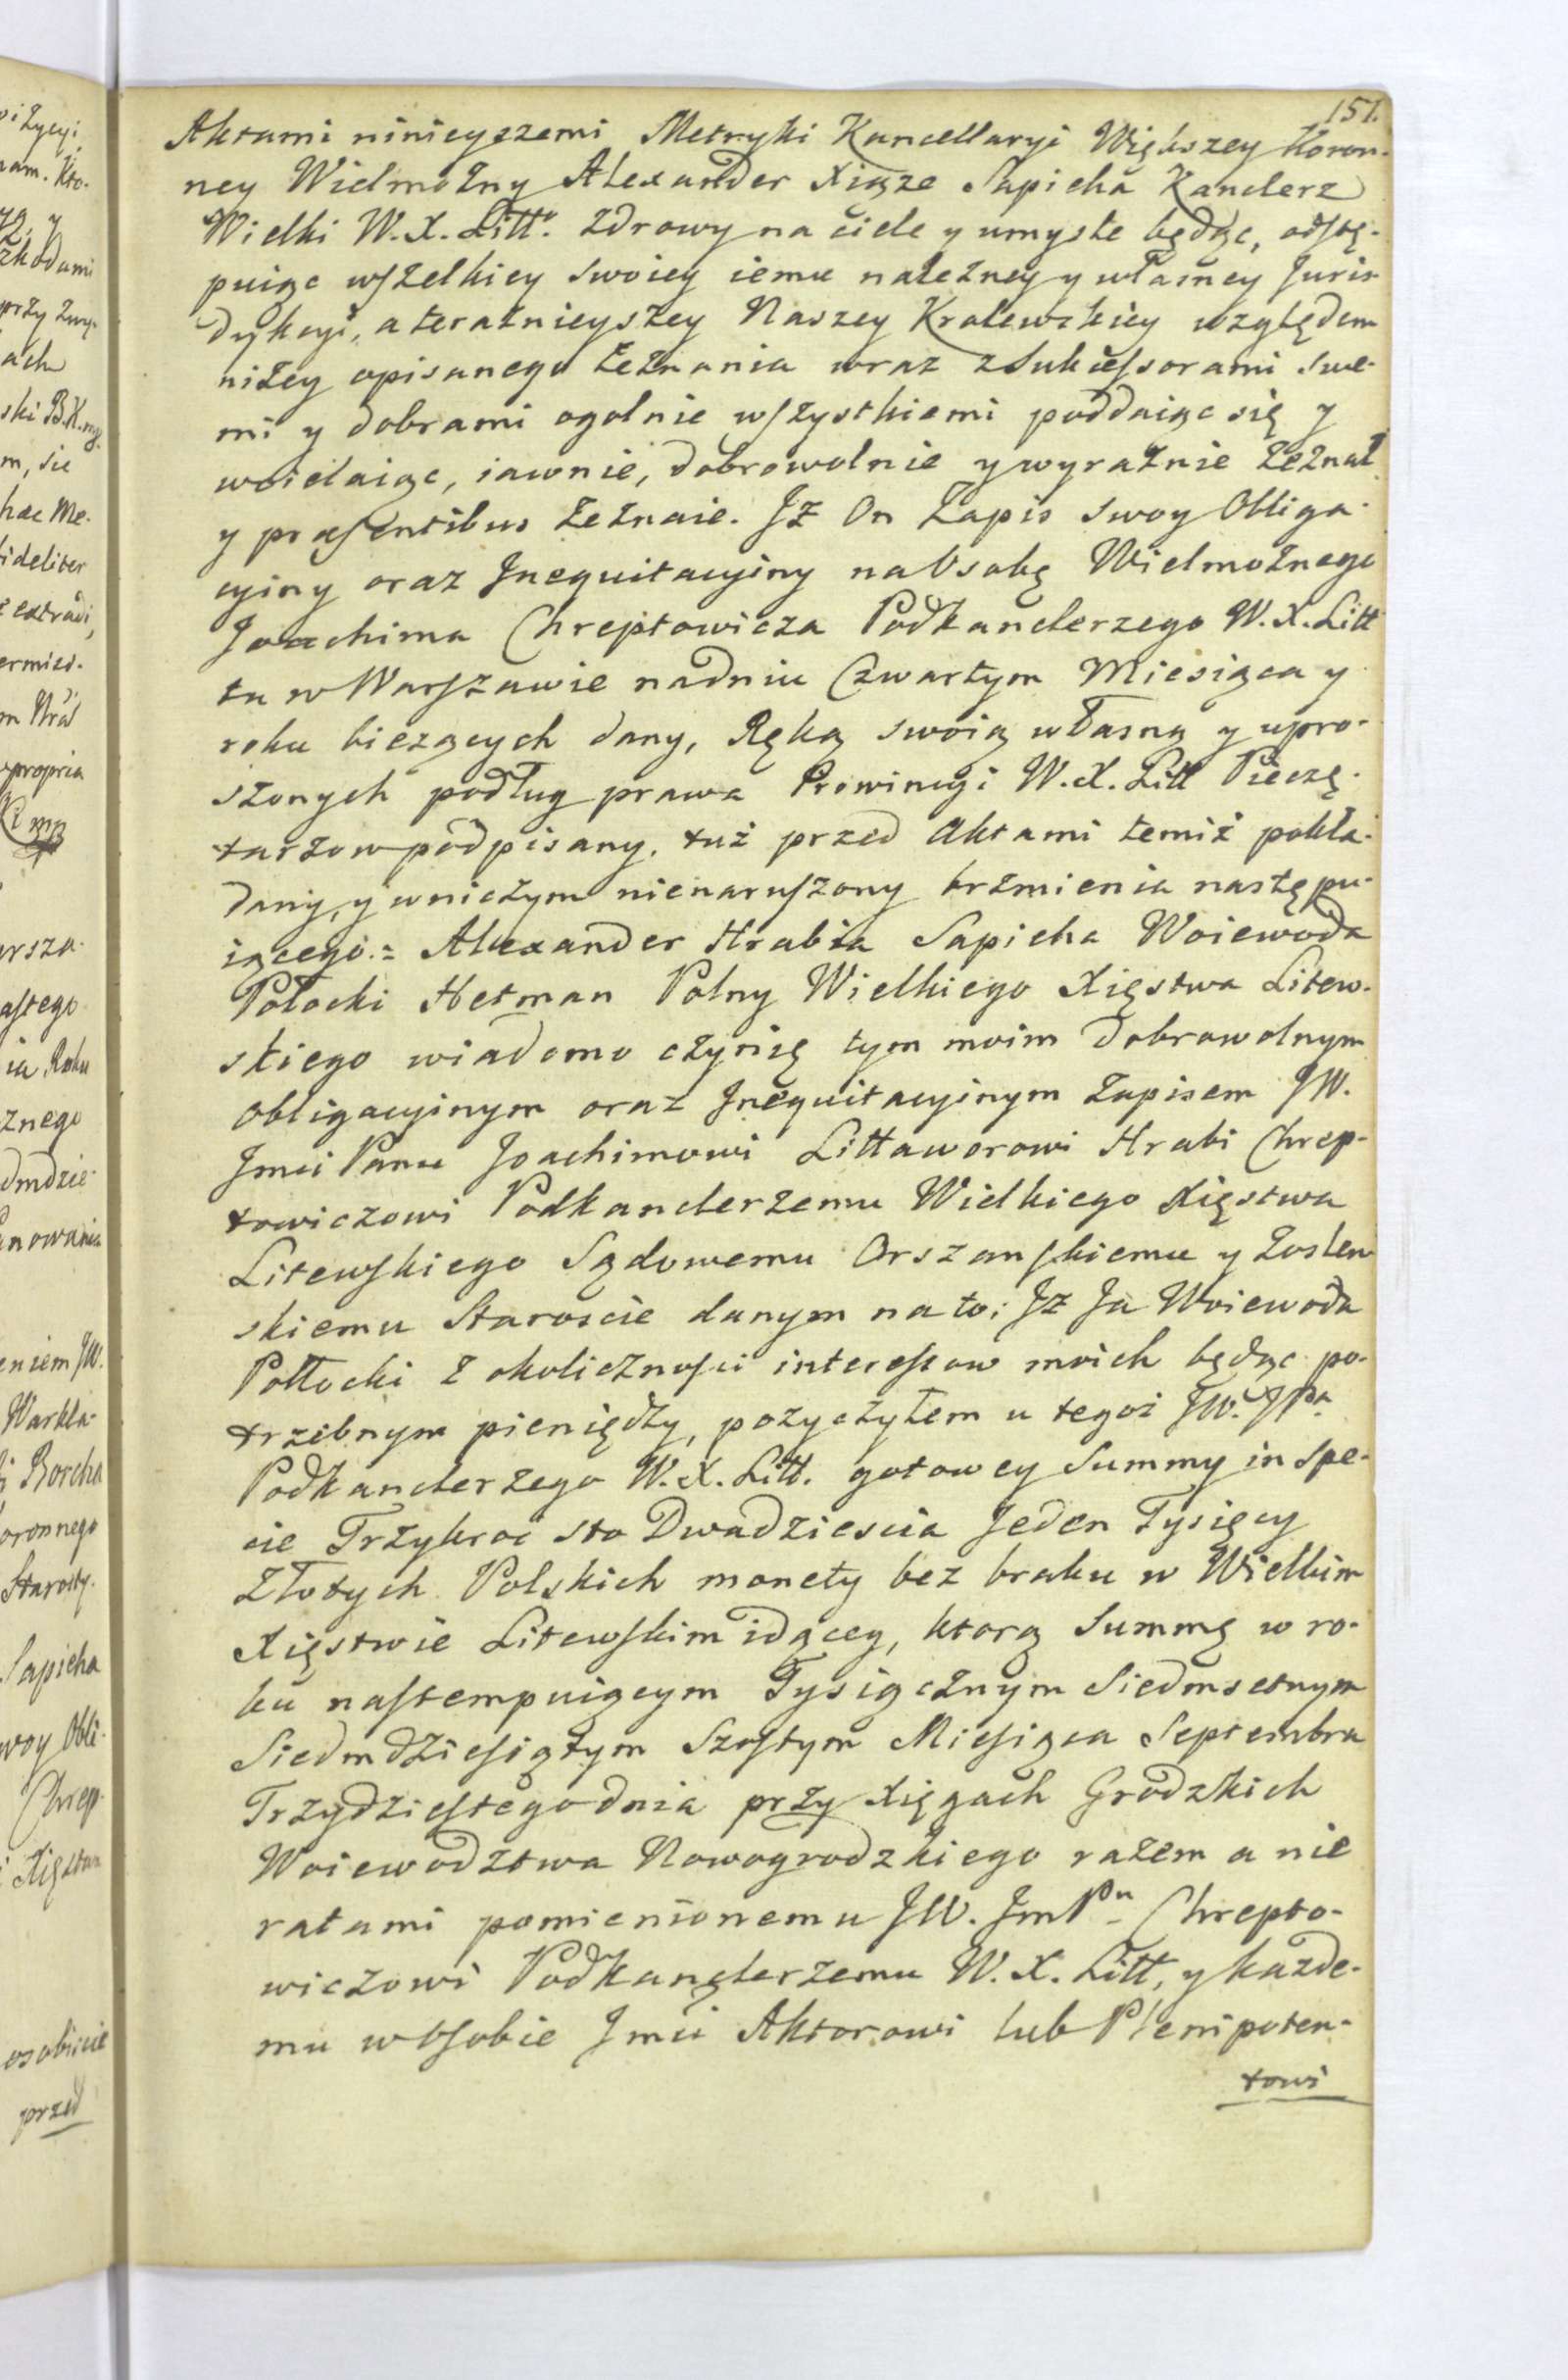 151.
Aktami ninieyszemi Metryki Kancellaryi Większey Koron-
ney Wielmożny Alexander Xiąże Sapieha Kanclerz
Wielki W. X. Litt. zdrowy na ciele y umyśle będąc, odstę-
puiąc wszelkiey swoiey iemu należney y własney Juris
dykcyi, a teraźnieyszey Naszey Krolewskiey względem
niżey opisanego zeznania wraz z Sukcessorami swe-
mi y dobrami ogolnie wszystkiemi poddaiąc się y
wcielaiąc, iawnie, dobrowolnie y wyraźnie zeznał
y præsentibus zeznaie. Jż On Zapis swoy Obliga-
cyiny oraz Jnequitacyiny na Osobę Wielmożnego
Joachima Chreptowicza Podkanclerzego W. X. Litt
tu w Warszawie na dniu Czwartym Miesiąca y
roku bieżących dany, Ręką swoią własną y upro-
szonych podług prawa Prowincyi W. X. Litt Pieczę-
tarzow podpisany, tuż przed Aktami temiż pokła-
dany, y w niczym nienaruszony brzmienia następu-
iącego.= Alexander Hrabia Sapieha Woiewoda
Połocki Hetman Polny Wielkiego Xięstwa Litew-
skiego wiadomo czynię tym moim Dobrowolnym
Obligacyinym oraz Jnequitacyinym Zapisem JW.
Jmci Panu Joachimowi Littaworowi Hrabi Chrep-
towiczowi Podkanclerzemu Wielkiego Xięstwa
Litewskiego Sądowemu Orszanskiemu y Zosten
skiemu Staroscie danym na to; Jż Ja Woiewoda
Połłocki z okolicznosci interessow moich będąc po-
trzebnym pieniędzy, pożyczyłem u tegoż JW. JPa
Podkanclerzego W. X. Litt. gotowey Summy in Spe-
cie Trzykroc sto Dwadziescia Jeden Tysięcy
Złotych Polskich monety bez braku w Wielkim
Xięstwie Litewskim idącey, ktorą Summę w ro-
ku nastempuiącym Tysiącznym Siedmsetnym
Siedmdziesiątym Szostym Miesiąca Septembra
Trzydziestego dnia przy Xięgach Grodzkich
Woiewodztwa Nowogrodzkiego razem a nie
ratami pomienionemu JW. JmPu Chrepto-
wiczowi Podkanclerzemu W. X. Litt, y każde-
mu w Osobie Jmci Aktorowi lub Plenipoten-
towi